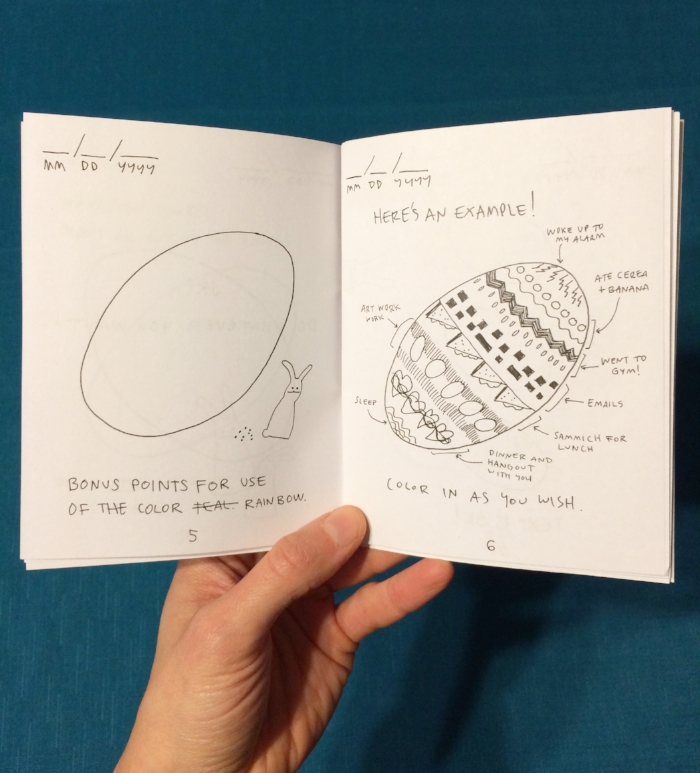 __/__/____
MM DD YYYY
BONUS POINTS FOR USE
OF THE COLOR TEAL RAINBOW.
5
__/__/____
MM DD YYYY
HERE'S AN EXAMPLE!
WOKE UP TO
MY ALARM
ATE CEREA
+ BANANA
WENT TO
GYM!
EMAILS
SAMMICH FOR
LUNCH
DINNER AND
HANGOUT
WITH YOU
SLEEP
ART WORK
WORK
COLOR IN AS YOU WISH.
6